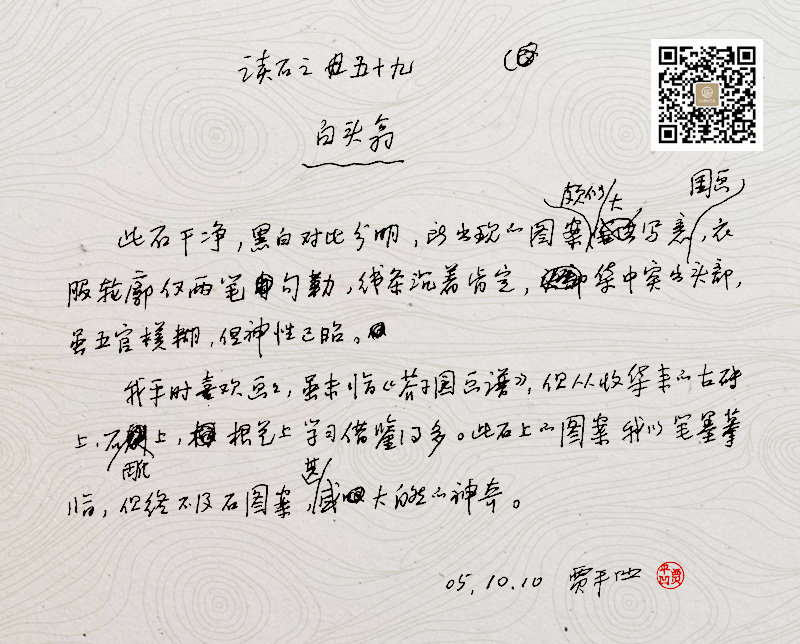 读石之五十九
白头翁
此石干净，黑白对比分明，所出现的图案颇似大写意国画，衣
服轮廓仅两笔勾勒，线条沉着肯定，集中突出头部，
虽五官模糊，但神性已临。
我平时喜欢画画，虽未临《芥子园画谱》，但从收集来的古砖
上，石雕上，根艺上学习借鉴得多。此石上的图案我以笔墨摹
临，但终不及石图案，甚感大自然的神奇。
05.10.10 贾平凹
贾平凹